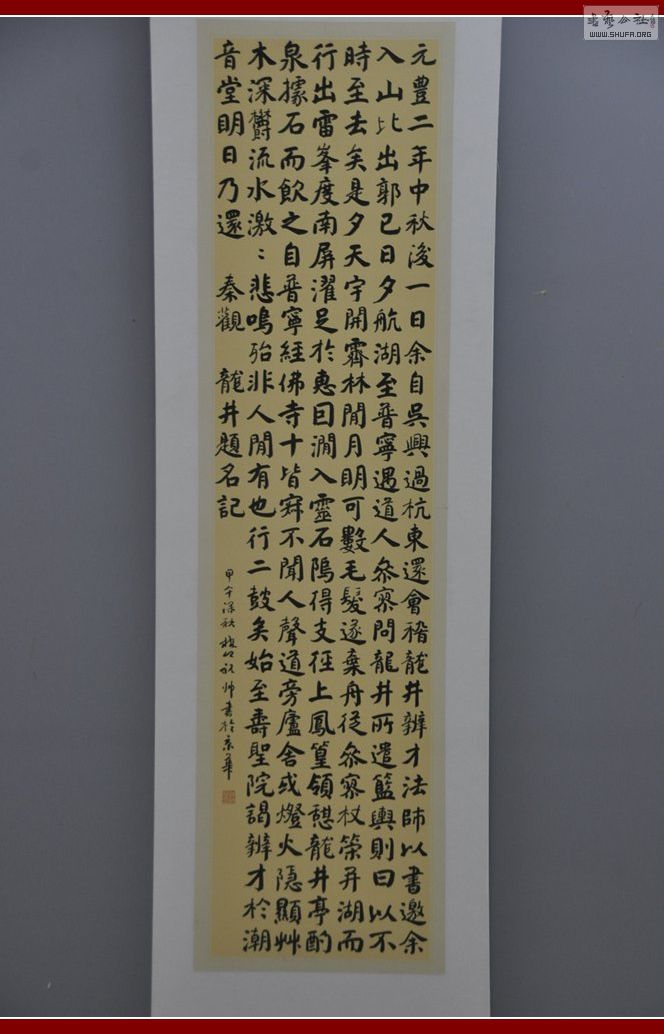 書藝公社
WWW.SHUFA.ORG
元豐二年中秋後一日余自吳興過杭東還會稽龍井辨才法師以書邀余
入山比出郭已日夕航湖至普寧遇道人叅寥問龍井所遣籃輿則曰以不
時至去矣是夕天宇開霽林間月明可數毛髮遂棄舟從叅寥杖策并湖而
行出雷峯度南屏濯足於惠因澗入靈石隖得支徑上鳳篁領憩龍井亭酌
泉據石而飲之自普寧經佛寺十皆寂不聞人聲道旁廬舍或燈火隱顯艸
木深欝流水激〻悲鳴殆非人間有也行二鼓矣始至壽聖院謁辨才於潮
音堂明日乃還 秦觀 龍井題名記
甲午深秋 帅書於京華